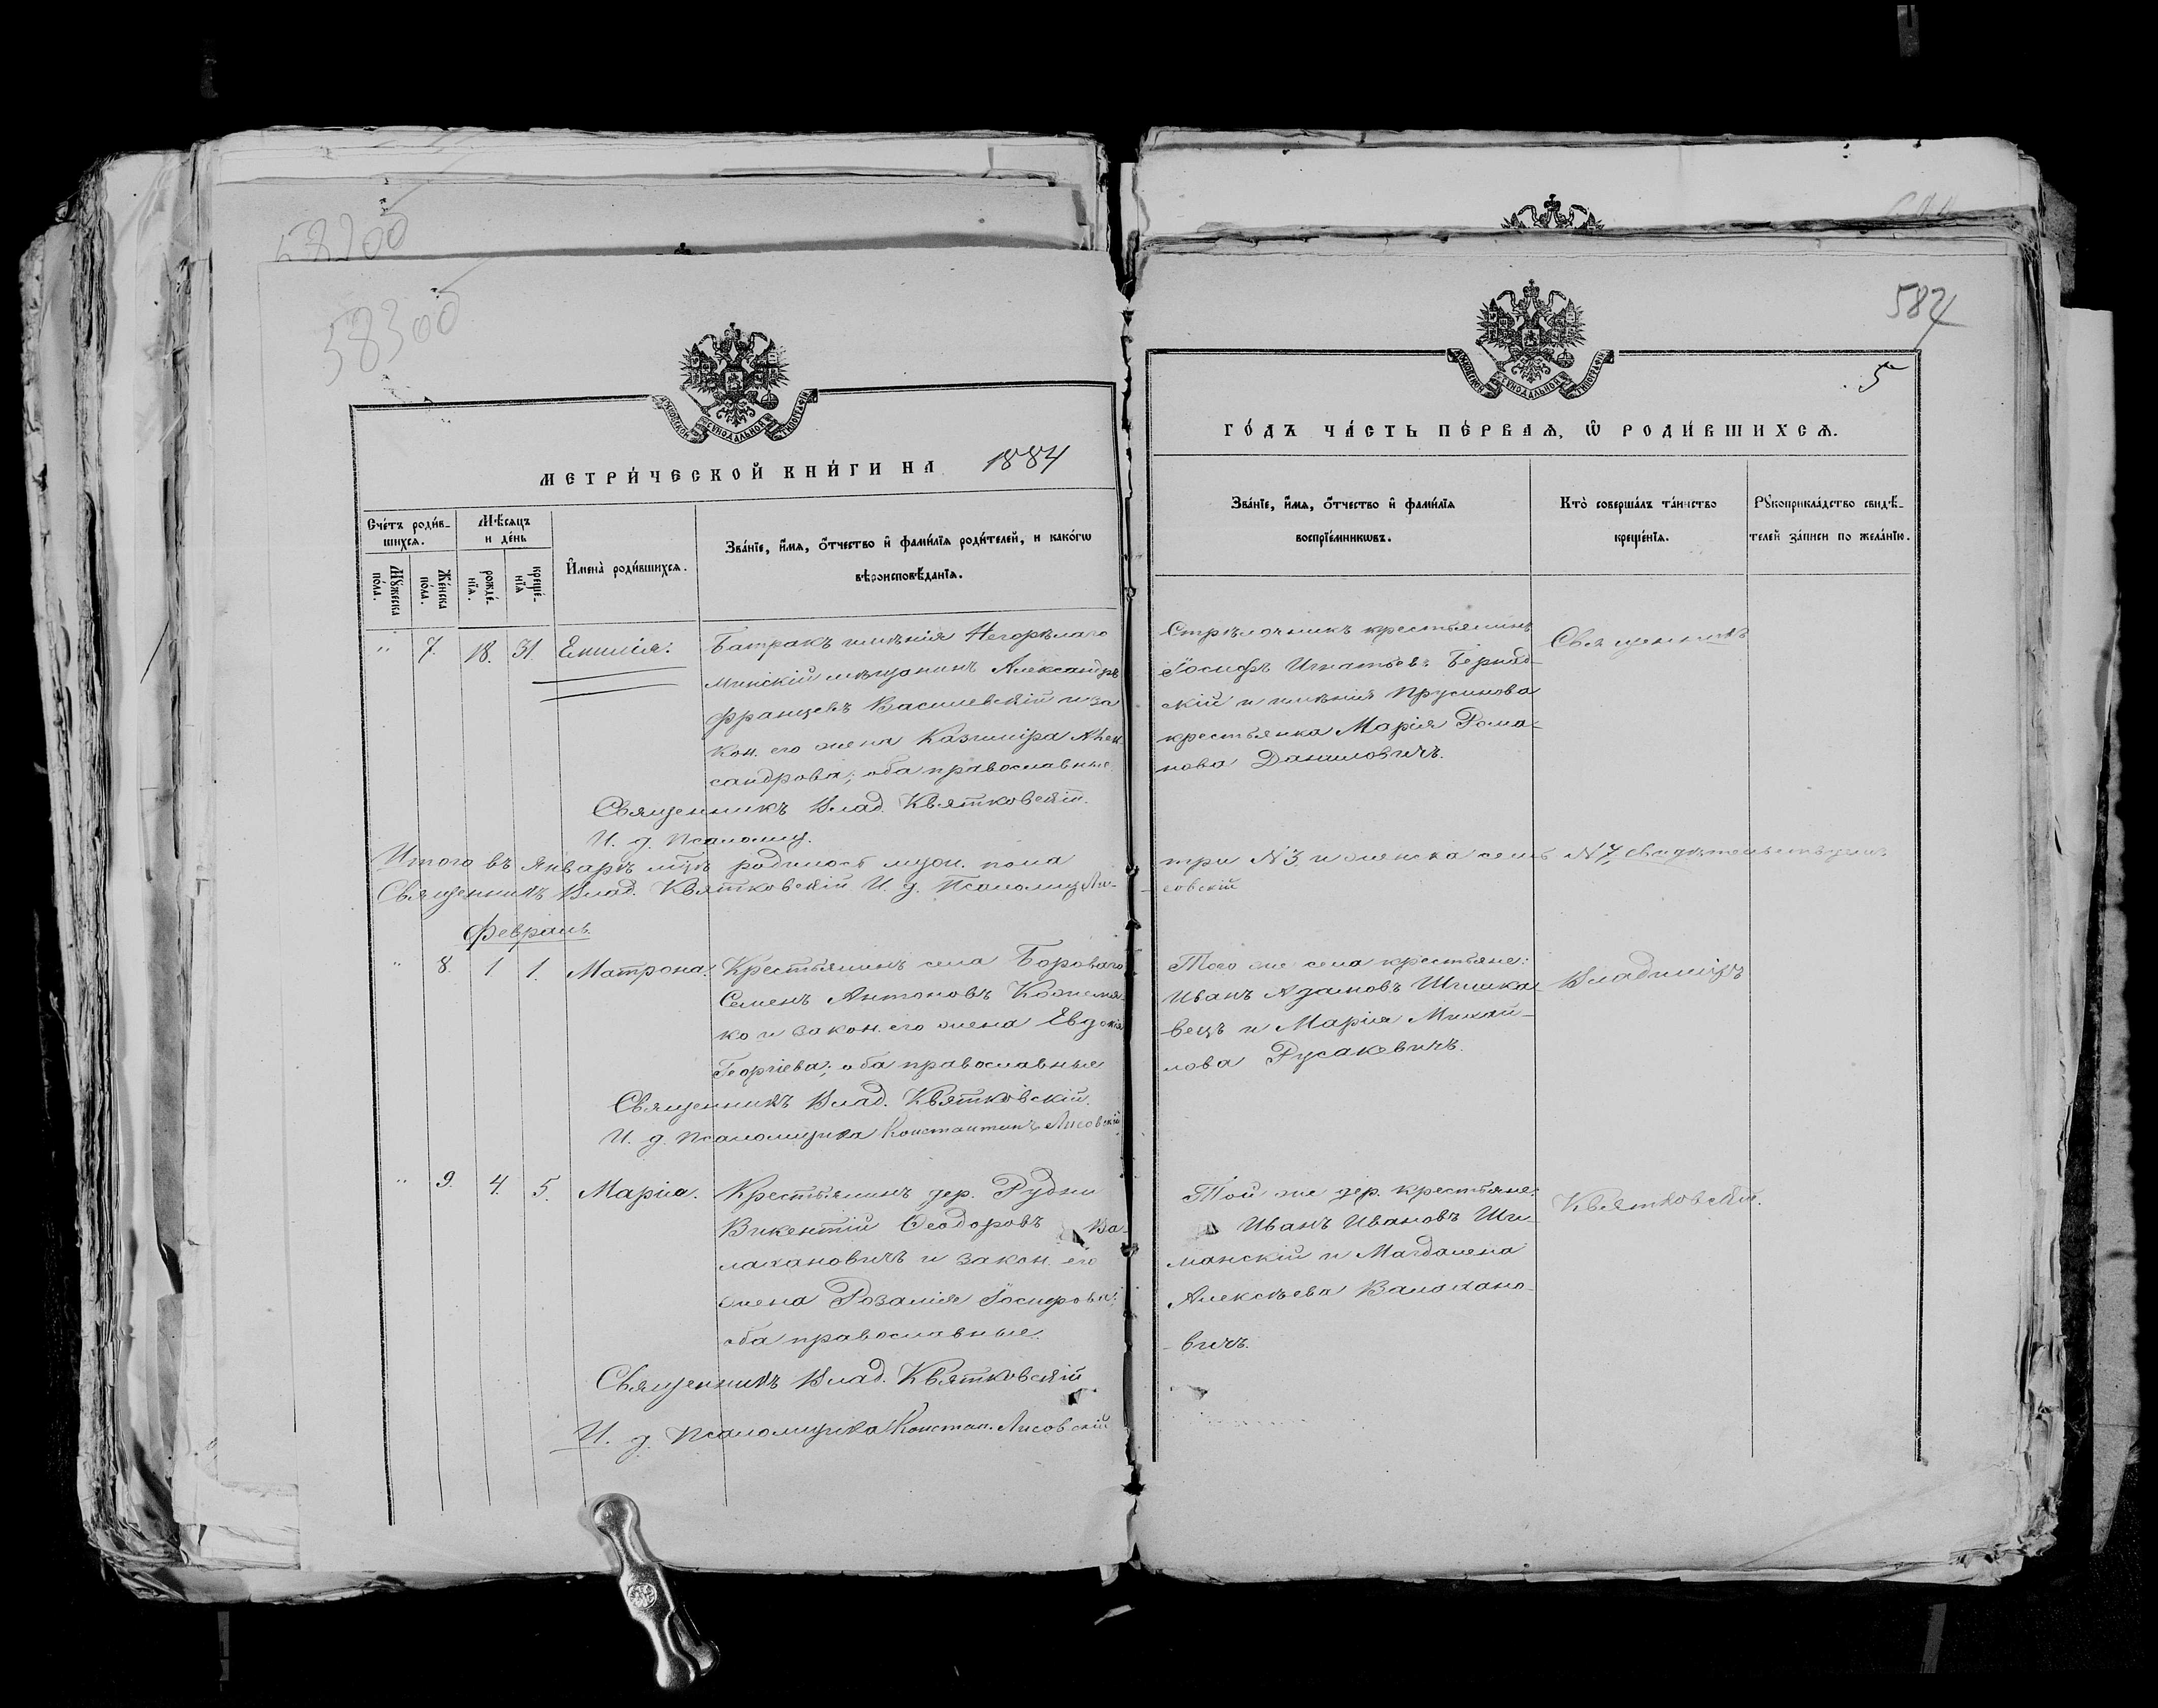 58200
58300
МЕТРИ́ЧЕСКОЙ КНИ́ГИ НА 1884
Сче́тъ роди́в-
шихсѧ.
Мѣ́сѧцъ
и де́нь
Мꙋ́жеска
по́ла.
Же́нска
по́ла.
рожде́-
нїѧ.
креще́-
нїѧ
И҆мена̀ роди́вшихсѧ.
Зва́нїе, и҆́мѧ, ѻ҆́тчество и҆ фами́лїѧ роди́телей, и како́гѡ
вѣроисповѣ́данїѧ.
" 7. 18. 31. Емилія.
Батракъ имѣнія Негорѣлаго
Минскій мѣщанинъ Александръ
Францевъ Василевскій и за
кон. его жена Казиміра Алек
сандрова; оба православные
Священникъ Влад. Квятковскій.
И. д. Псаломщ.
Итого въ Январѣ мцѣ родилось муж. пола
Священникъ Влад. Квятковскій И. д. Псаломщ Ли-
Февраль.
" 8. 1 1. Матрона.
Крестьянинъ села Бороваго
Семенъ Антоновъ Кожемя-
ко и закон. его жена Евдокія
Георгіева; оба православные
Священникъ Влад. Квятковскій.
И. д. псаломщика Константинъ Лисовскій
" 9. 4. 5. Марія.
Крестьянинъ дер. Рудни
Викентій Ѳеодоровъ Ва-
лахановичъ и закон. его
жена Розалія Іосифова;
оба православные.
Священникъ Влад. Квятковскій
И. д. Псаломщика Констан. Лисовскій
584
5
ГО́ДЪ ЧА́СТЬ ПЕ́РВАѦ, Ѡ҆ РОДИ́ВШИХСѦ.
Зва́нїе, и҆́мѧ, ѻ҆́тчество и҆ фами́лїѧ
воспрїе́мникѡвъ.
Кто̀ соверша́лъ та́инство
креще́нїѧ.
Рꙋкоприкла́дство свидѣ́-
телей за́писи по жела́нїю.
Стрѣлочникъ крестьянинъ
Іосифъ Игнатьевъ Бернад-
скій и имѣнія Прусинова
крестьянка Марія Рома-
нова Даниловичъ.
Священникъ
три N 3 и женска семь N 7, свидѣтельствуемъ.
совскій
Того же села крестьяне:
Иванъ Адамовъ Шишка
вецъ и Марія Михай-
лова Русакевичъ.
Владиміръ
Той же дер. крестьяне:
Иванъ Ивановъ Ши-
манскій и Магдалена
Алексѣева Валахано-
вичъ.
Квятковскій.